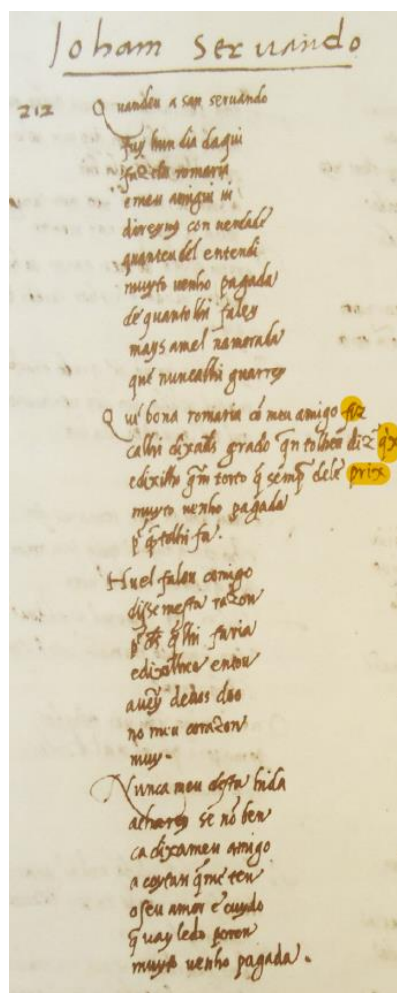 Joham Seruando
212 Quandeu a san seruando
fuy hun dia daqui
faz ela romaria
e meu amigui ui
direyuꝯ con uerdade
quanteu del entendi
muyto uenho pagada
de quanto lhi faley
mays amel namorada
que nuncalhi guarrey
Que bona romaria cõ meu amigo fix
calhi dixa grado qñ tolhen diz q̃x
edixilhi grã torto q̃ semp̃ dele prix
muyto uenho pagada
p̃ q̃tolhi fa.
Huel falou comigo
disse mesta razon
q̃ lhi faria
edixilheu enton
auey deuos doo
no meu corazon
muy.
Nunca meu desta hida
acharey se nõ ben
ca dixameu amigo
a coytan q̃me ten
o seu amor e cuydo
q̃ uay ledo poren
muyto uenho pagada.